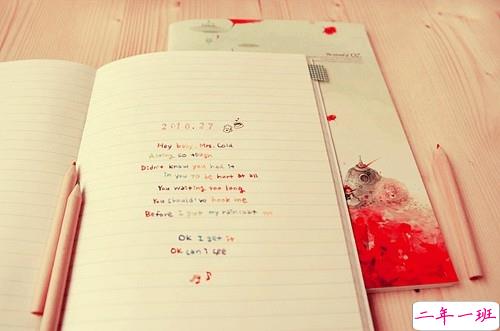 2010.27
Hey baby, Mrs. Cold
Acting so tough
Didn't know you had it
In you to be hurt at all
You waiting too long
You should've hook me
Before I put my raincoat on
OK I get it
OK can I see
二年一班